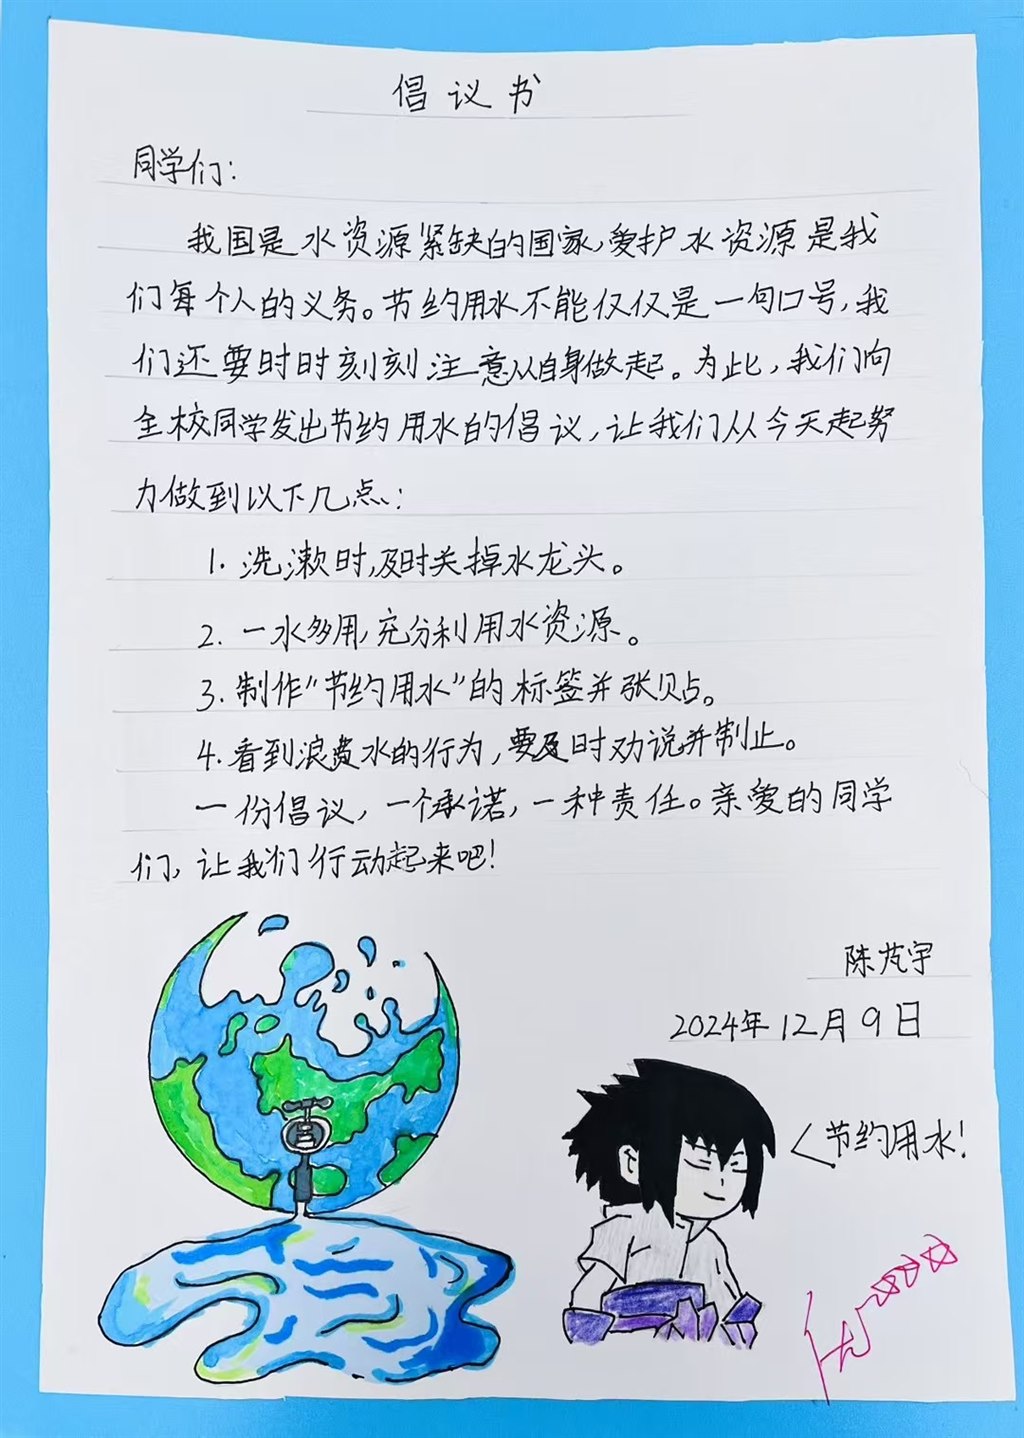 倡议书
同学们：
我国是水资源紧缺的国家，爱护水资源是我
们每个人的义务。节约用水不能仅仅是一句口号，我
们还要时时刻刻注意从自身做起。为此，我们向
全校同学发出节约用水的倡议，让我们从今天起努
力做到以下几点：
1. 洗漱时，及时关掉水龙头。
2. 一水多用，充分利用水资源。
3. 制作“节约用水”的标签并张贴。
4. 看到浪费水的行为，要及时劝说并制止。
一份倡议，一个承诺，一种责任。亲爱的同学
们，让我们行动起来吧！
陈芃宇
2024年12月9日
节约用水！
优